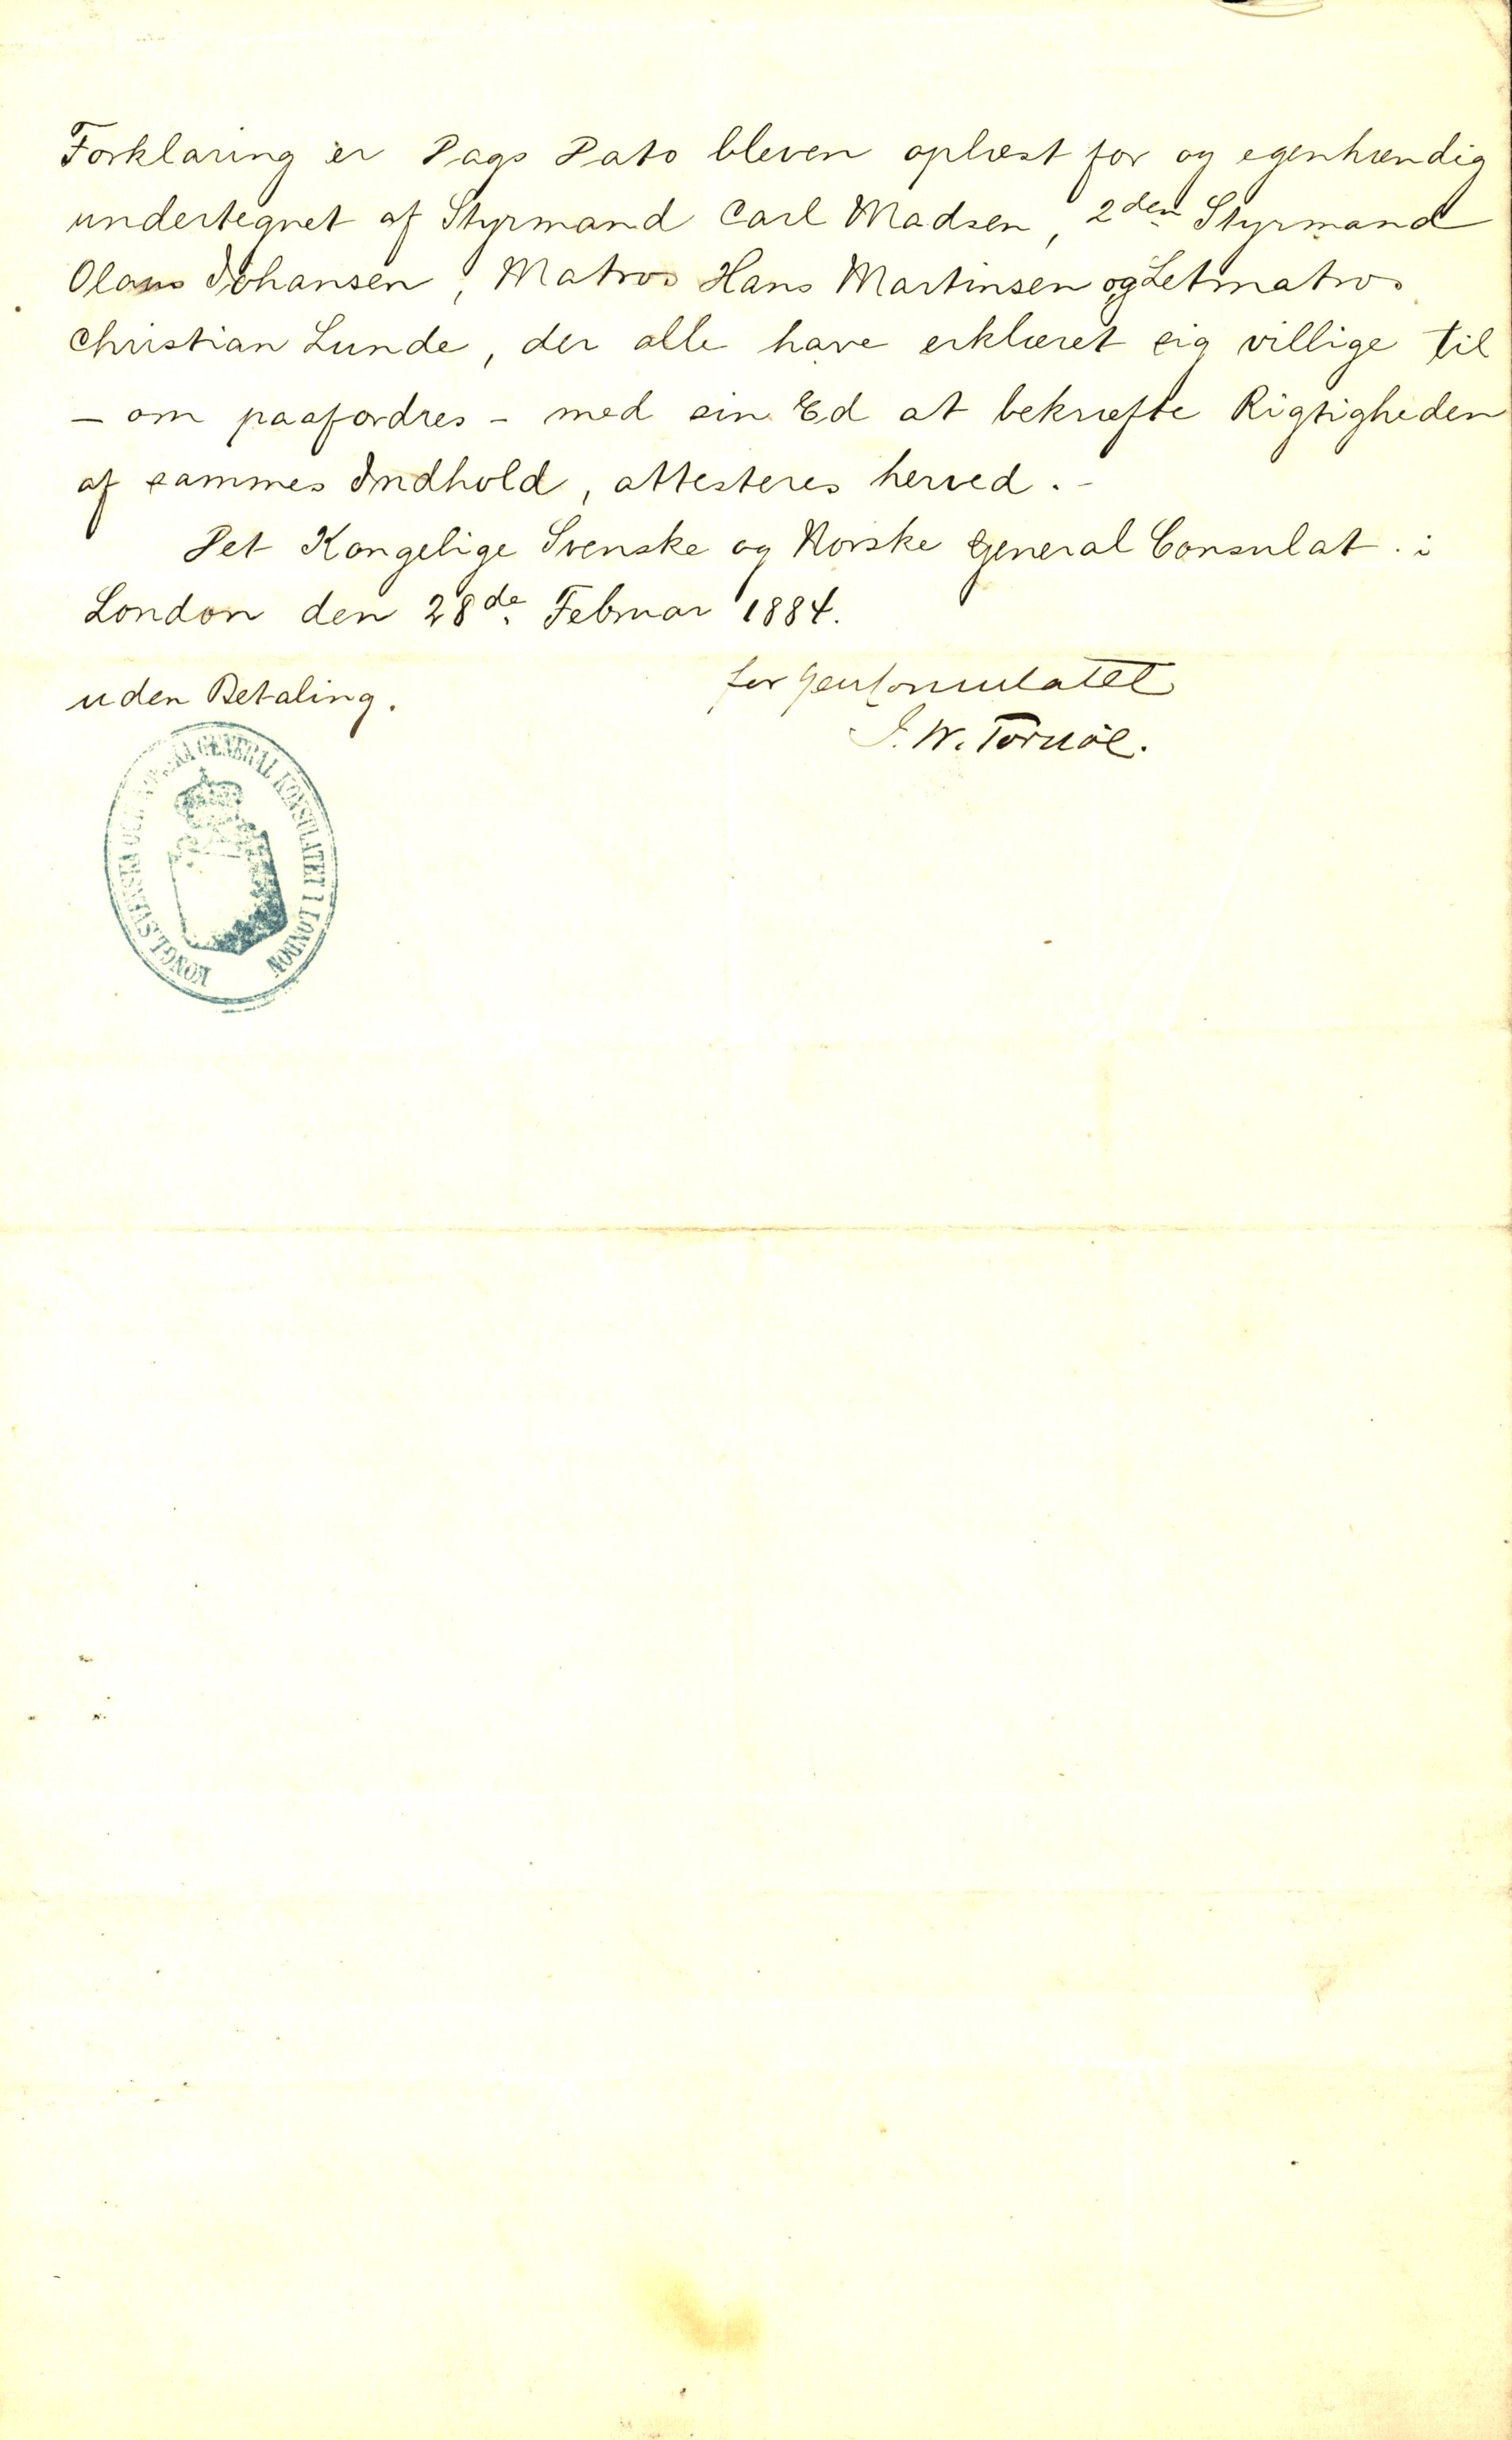 Forklaring er Dags Dato bleven oplæst for og egenhændig
undertegnet af Styrmand Carl Madsen, 2den Styrmand
Olaus Johansen, Matros Hans Martinsen og Letmatros
Christian Lunde, der alle have erklæret sig villige til
– om paafordres – med sin Ed at bekræfte Rigtigheden
af sammes Indhold, attesteres herved. –
Det Kongelige Svenske og Norske General Consulat i
London den 28de Februar 1884.
uden Betaling.
for Genkonsulatet
J. W. Tornöe.
KONGL. SVENSKA OCH NORSKA GENERAL KONSULATET I LONDON